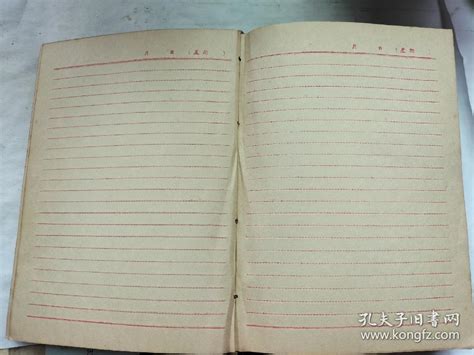 月 日 (星期 )
月 日 (星期 )
孔夫子旧书网
www.kongfz.com